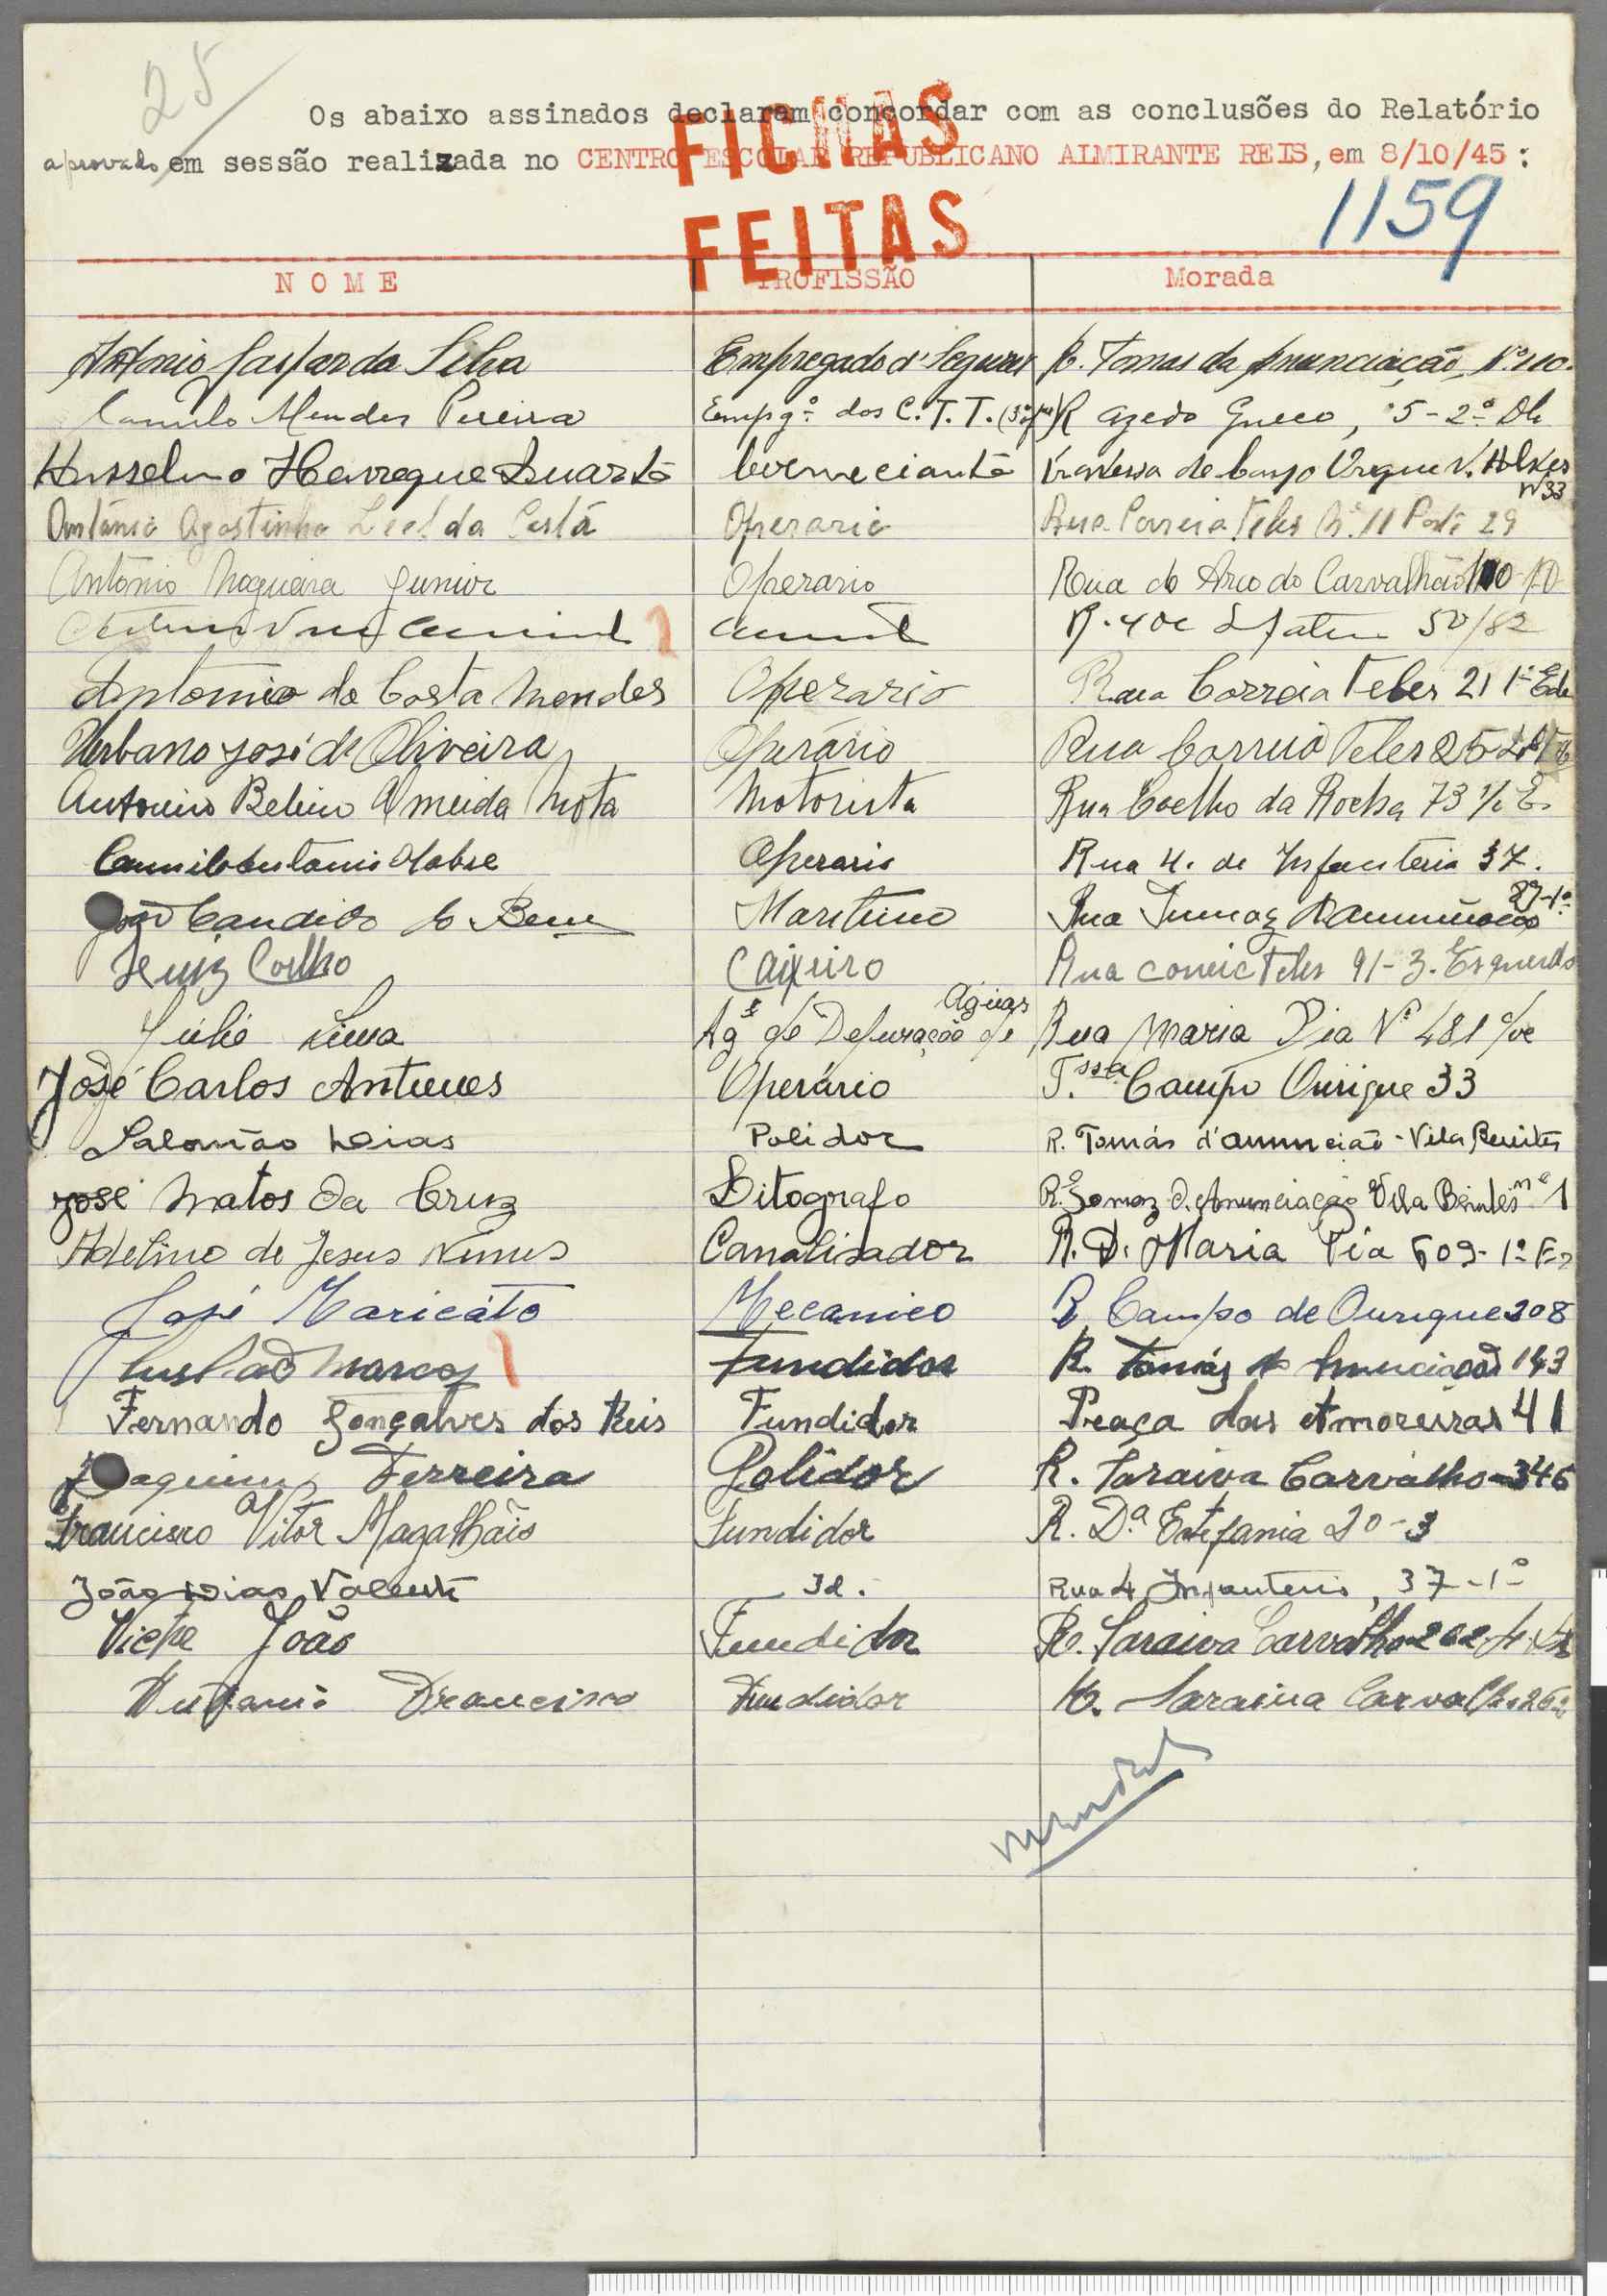 25
Os abaixo assinados declaram concordar com as conclusões do Relatório
aprovado em sessão realizada no CENTRO ESCOLAR REPUBLICANO ALMIRANTE REIS, em 8/10/45 :
FICHAS
FEITAS
1159
N O M E PROFISSÃO Morada
António Gaspar da Silva Empregado d'Seguros R. Tomas da Anunciação, Nº 110.
Camilo Mendes Pereira Empgº dos C.T.T. R Azedo Gneco, 5-2º Dt
Duarte Comerciante Travessa de Campo Ourique V. Alves
Nº 33
António Agostinho Leal da Costa Operario Rua Correia Teles Nº 11 Porta 29
António Nogueira Junior Operario Rua do Arco do Carvalhão
50/82
Antonio da Costa Mendes Operario Rua Correia Teles 21 1º Esq
Urbano José de Oliveira Operário Rua Correia Teles 25
António Belino Almeida Mota Motorista Rua Coelho da Rocha 73 1/c E.
Camilo António Operario Rua 4. de Infanteria 37.
João Candido Maritimo Rua Tomaz D'Anunciação
87-1º
Luiz Coelho Caixeiro Rua Correia Teles 91-3. Esquerdo
Júlio Lima Agte de Depuração de Águas Rua Maria Pia Nº 481
José Carlos Antunes Operário T.ssa Campo Ourique 33
Salomão Dias Polidor R. Tomás d'anunciaão - Vila Benites
José Matos Da Cruz Litografo R. Tomaz d. Anunciação Vila Benites nº 1
Adelino de Jesus Nunes Canalisador R. D. Maria Pia 609-1º
José Maricáto Mecanico R Campo de Ourique 208
Marcos Fundidor R. Tomáz da Anunciação 143
Fernando Gonçalves dos Reis Fundidor Praça das Amoreiras 41
Joaquim Ferreira Polidor R. Saraiva Carvalho 346
Francisco Vitor Magalhãis Fundidor R. D.ª Estefania 20-3
João Dias Valente Id. Rua 4 Infanteria, 37-1º
João Fundidor R. Saraiva Carvalho 262
Francisco Fundidor R. Saraiva Carvalho 262